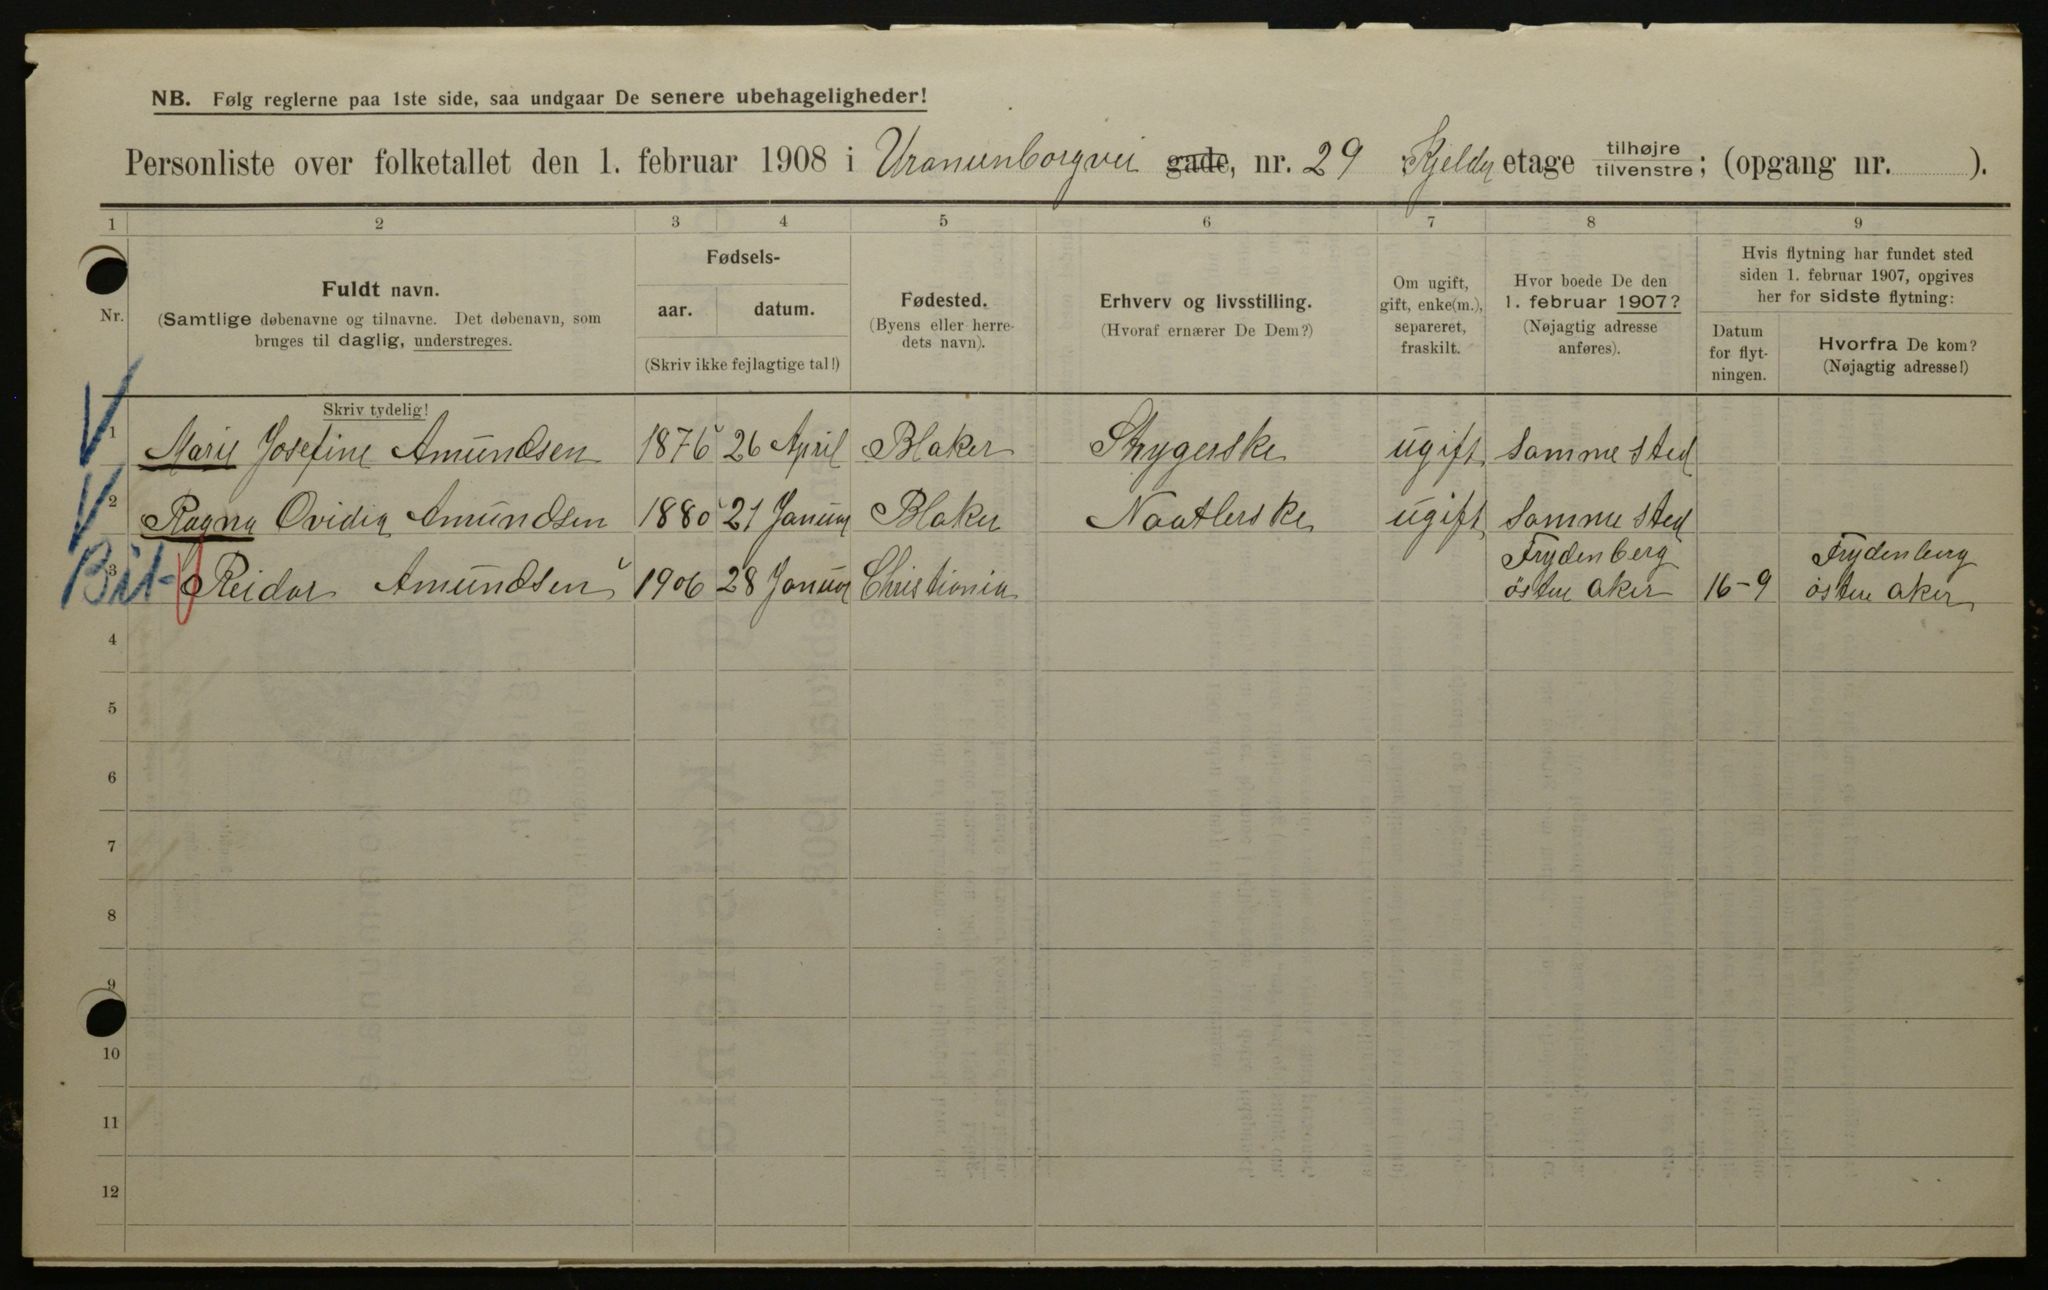 NB. Følg reglerne paa 1ste side, saa undgaar De senere ubehageligheder!
Personliste over folketallet den 1. februar 1908 i Uranienborgvei gade, nr. 29 Kjelder etage tilhøjre tilvenstre; (opgang nr. ).
1 2 3 4 5 6 7 8 9
Nr.
Fuldt navn.
(Samtlige døbenavne og tilnavne. Det døbenavn, som
bruges til daglig, understreges.
Skriv tydelig!
Fødsels-
aar. datum.
(Skriv ikke fejlagtige tal!)
Fødested.
(Byens eller herre-
dets navn).
Erhverv og livsstilling.
(Hvoraf ernærer De Dem?)
Om ugift,
gift, enke(m.),
separeret,
fraskilt.
Hvor boede De den
1. februar 1907?
(Nøjagtig adresse
anføres).
Hvis flytning har fundet sted
siden 1. februar 1907, opgives
her for sidste flytning:
Datum
for flyt-
ningen.
Hvorfra De kom?
(Nøjagtig adresse!)
1 Marie Josefine Amundsen 1876 26 April Blaker Strygerske ugift samme sted
2 Ragna Ovidia Amundsen 1880 21 Januar Blaker Naatlerske ugift samme sted
Frydenberg Frydenberg
3 Reidar Amundsen 1906 28 Januar Christiania östre Aker 16-9 östre Aker
4
5
6
7
8
9
10
11
12